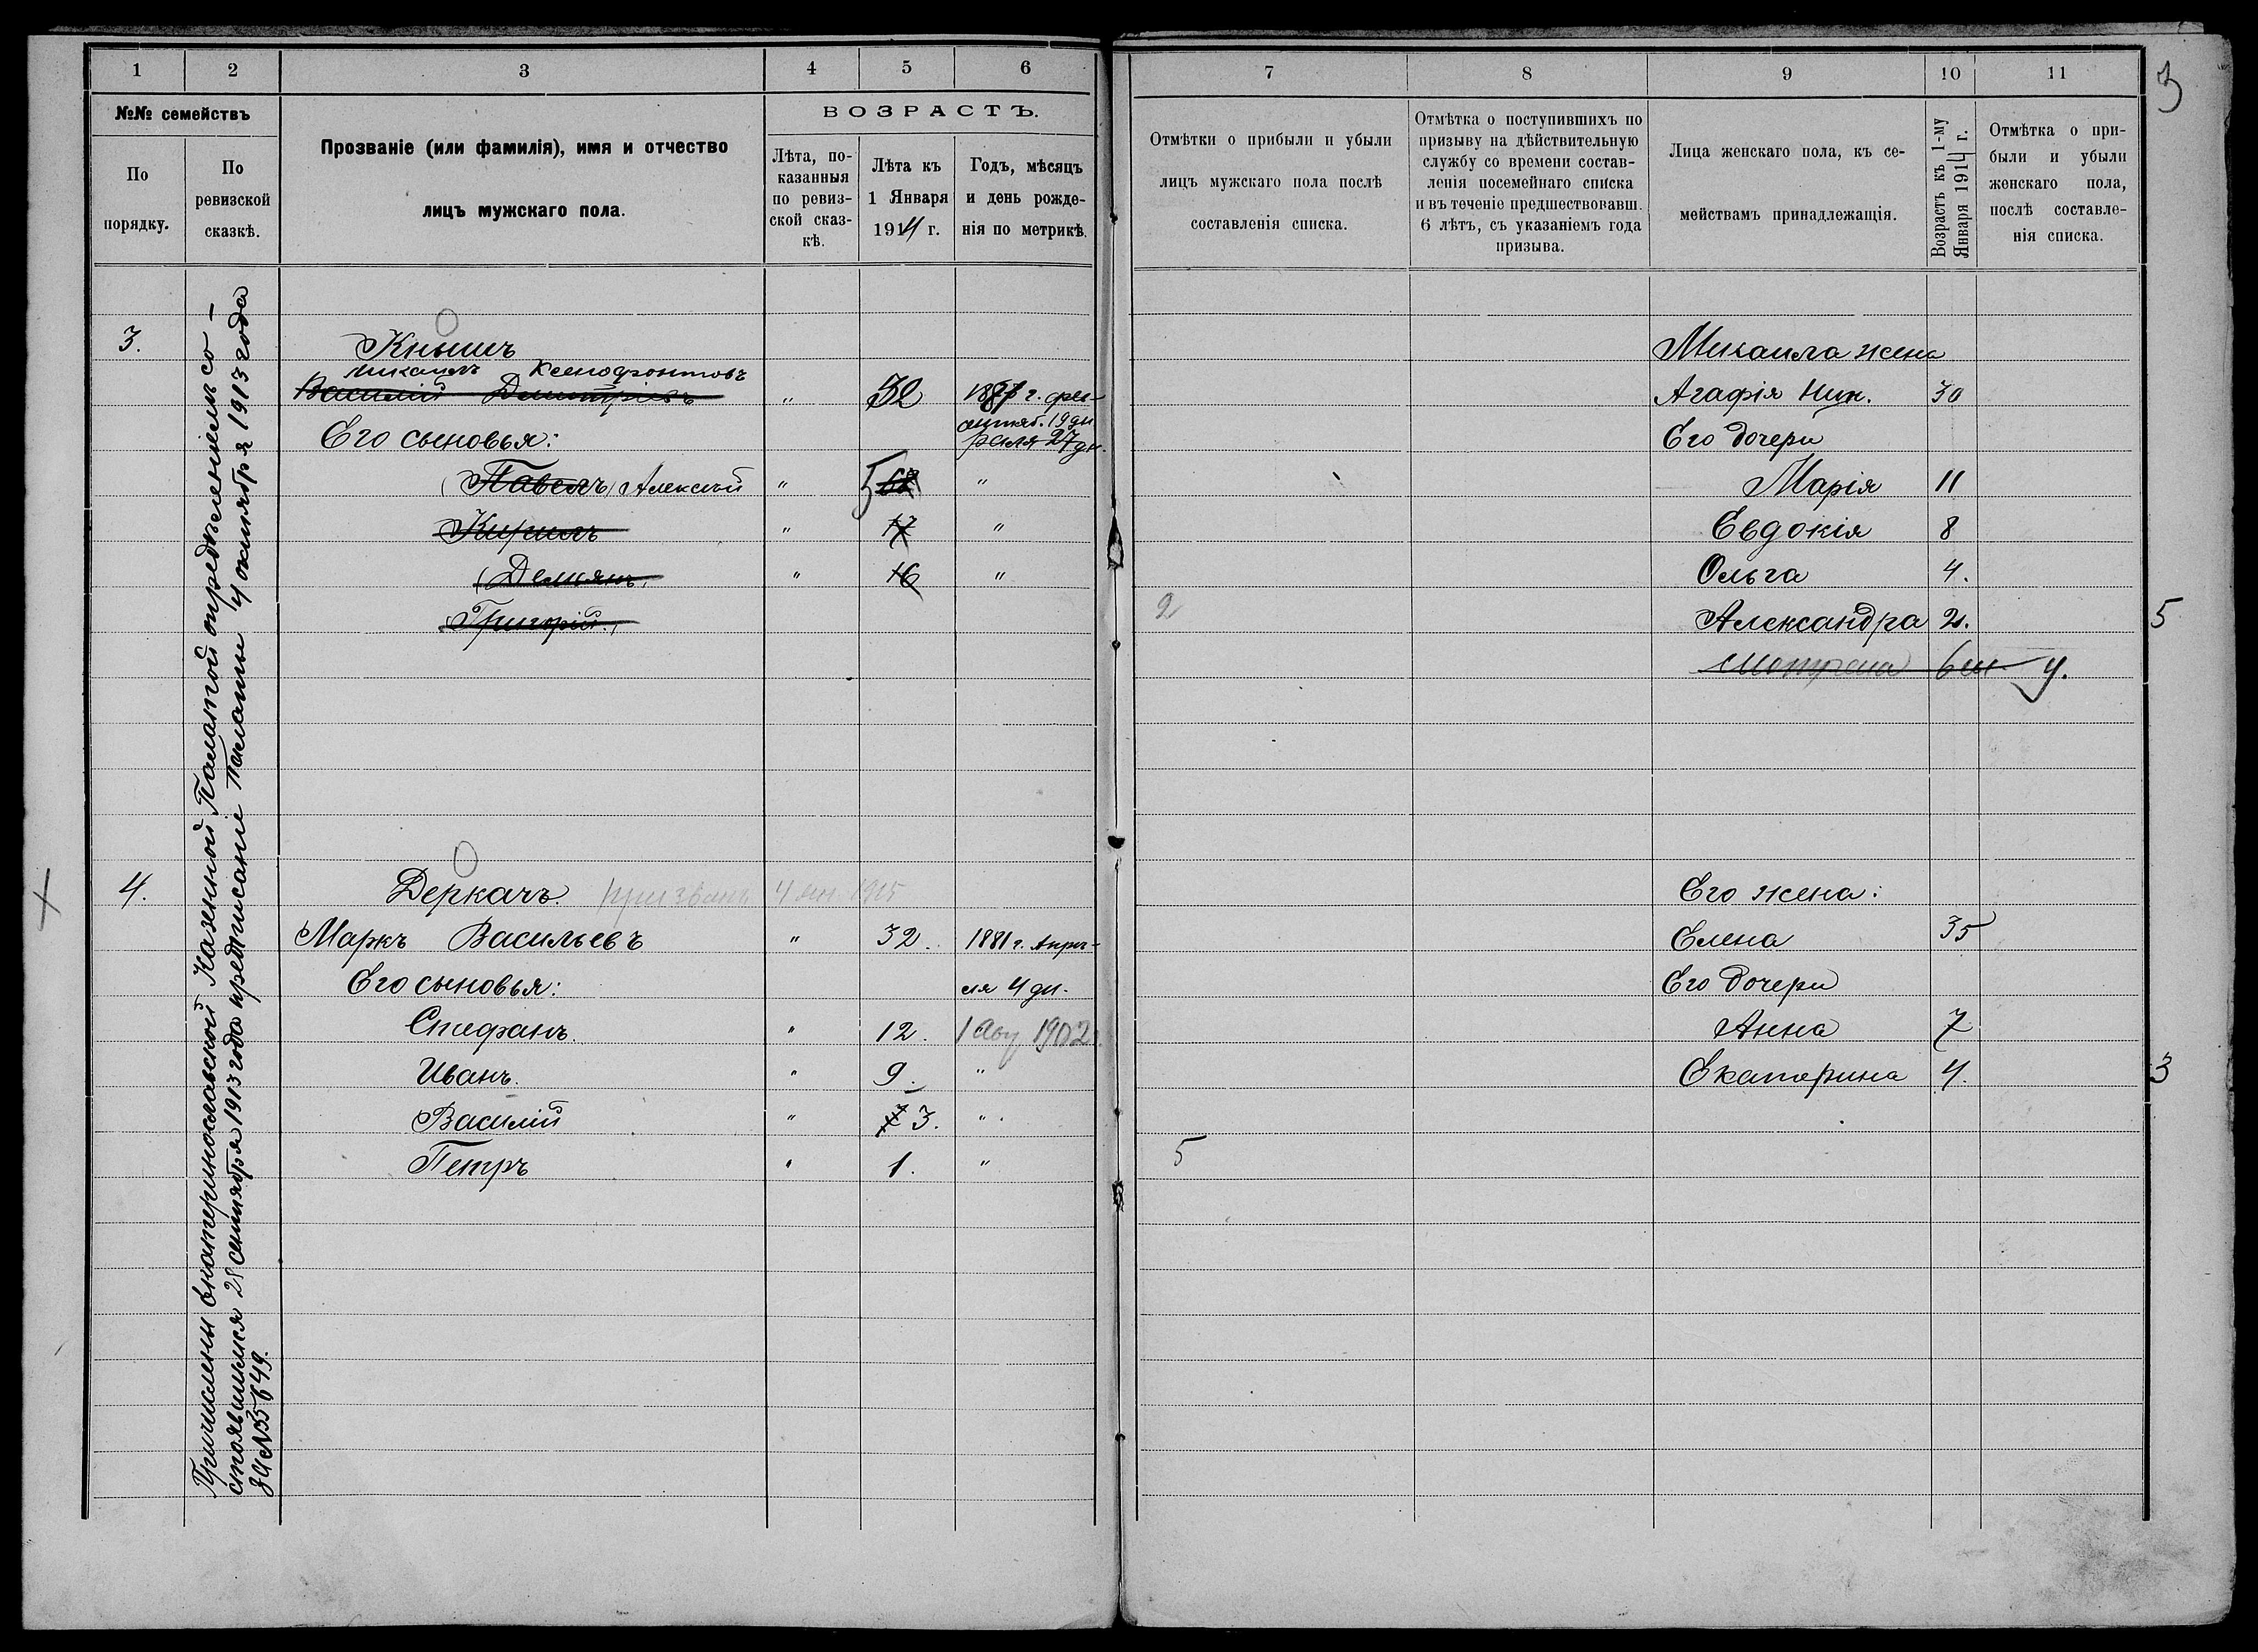 1 2 3 4 5 6
№№ семействъ
По порядку.
По ревизской сказкѣ.
Прозваніе (или фамилія), имя и отчество
лицъ мужскаго пола.
ВОЗРАСТЪ.
Лѣта, по-
казанныя
по ревиз-
ской сказ-
кѣ.
Лѣта къ
1 Января
1914 г.
Годъ, мѣсяцъ
и день рожде-
нія по метрикѣ.
Причислены Екатеринославской Казенной Палатой опредѣленіемъ со-
стоявшимся 28 сентября 1913 года предписаніе Палаты 4 октября 1913 года
за № 5649.
3.
Кнышъ
Михаилъ Ксенофонтовъ
Василий Дмитріевъ " 32
сентяб. 19 дн
раля 27 дн.
Его сыновья:
Павелъ Алексѣй " 5 "
Кирилъ " 17 "
Демьянъ " 16 "
Григорій.
4.
Деркачъ. призванъ 1915
Маркъ Васильевъ " 32. 1881 г. Апрѣ-
Его сыновья: ля 4 дн.
Стефанъ. " 12. 1 Авг 1902
Иванъ. " 9. "
Василій " 7 3. "
Петръ " 1. "
7 8 9 10 11
3
Отмѣтки о прибыли и убыли
лицъ мужскаго пола послѣ
составленія списка.
Отмѣтка о поступившихъ по
призыву на дѣйствительную
службу со времени состав-
ленія посемейнаго списка
и въ теченіе предшествовавш.
6 лѣтъ, съ указаніемъ года
призыва.
Лица женскаго пола, къ се-
мействамъ принадлежащія.
Возрастъ къ 1-му
Января 1914 г.
Отмѣтка о при-
были и убыли
женскаго пола,
послѣ составле-
нія списка.
Михаила жена
Агафія Ник. 30
Его дочери
Марія 11
Евдокія 8
Ольга 4.
2 Александра 2. 5
Мотрена у.
Его жена:
Елена 35
Его дочери
Анна 7
Екатерина 4. 3
5